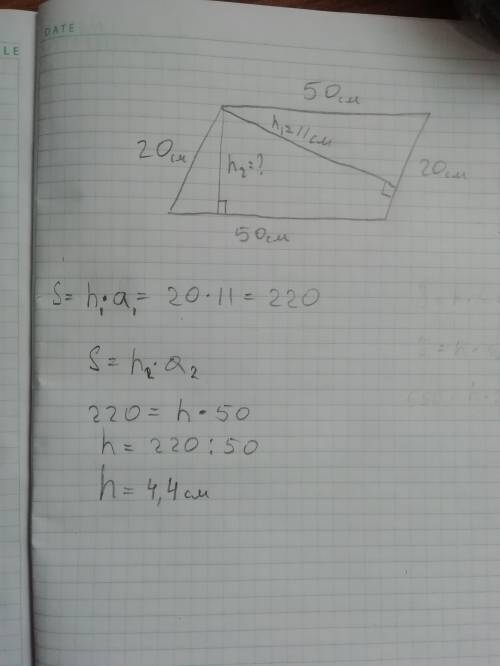 DATE
LE
50см
20см
h₁=11см
h₂=?
20см
50см
S = h₁·a₁ = 20·11 = 220
S = h₂·a₂
220 = h·50
h = 220:50
h = 4,4см